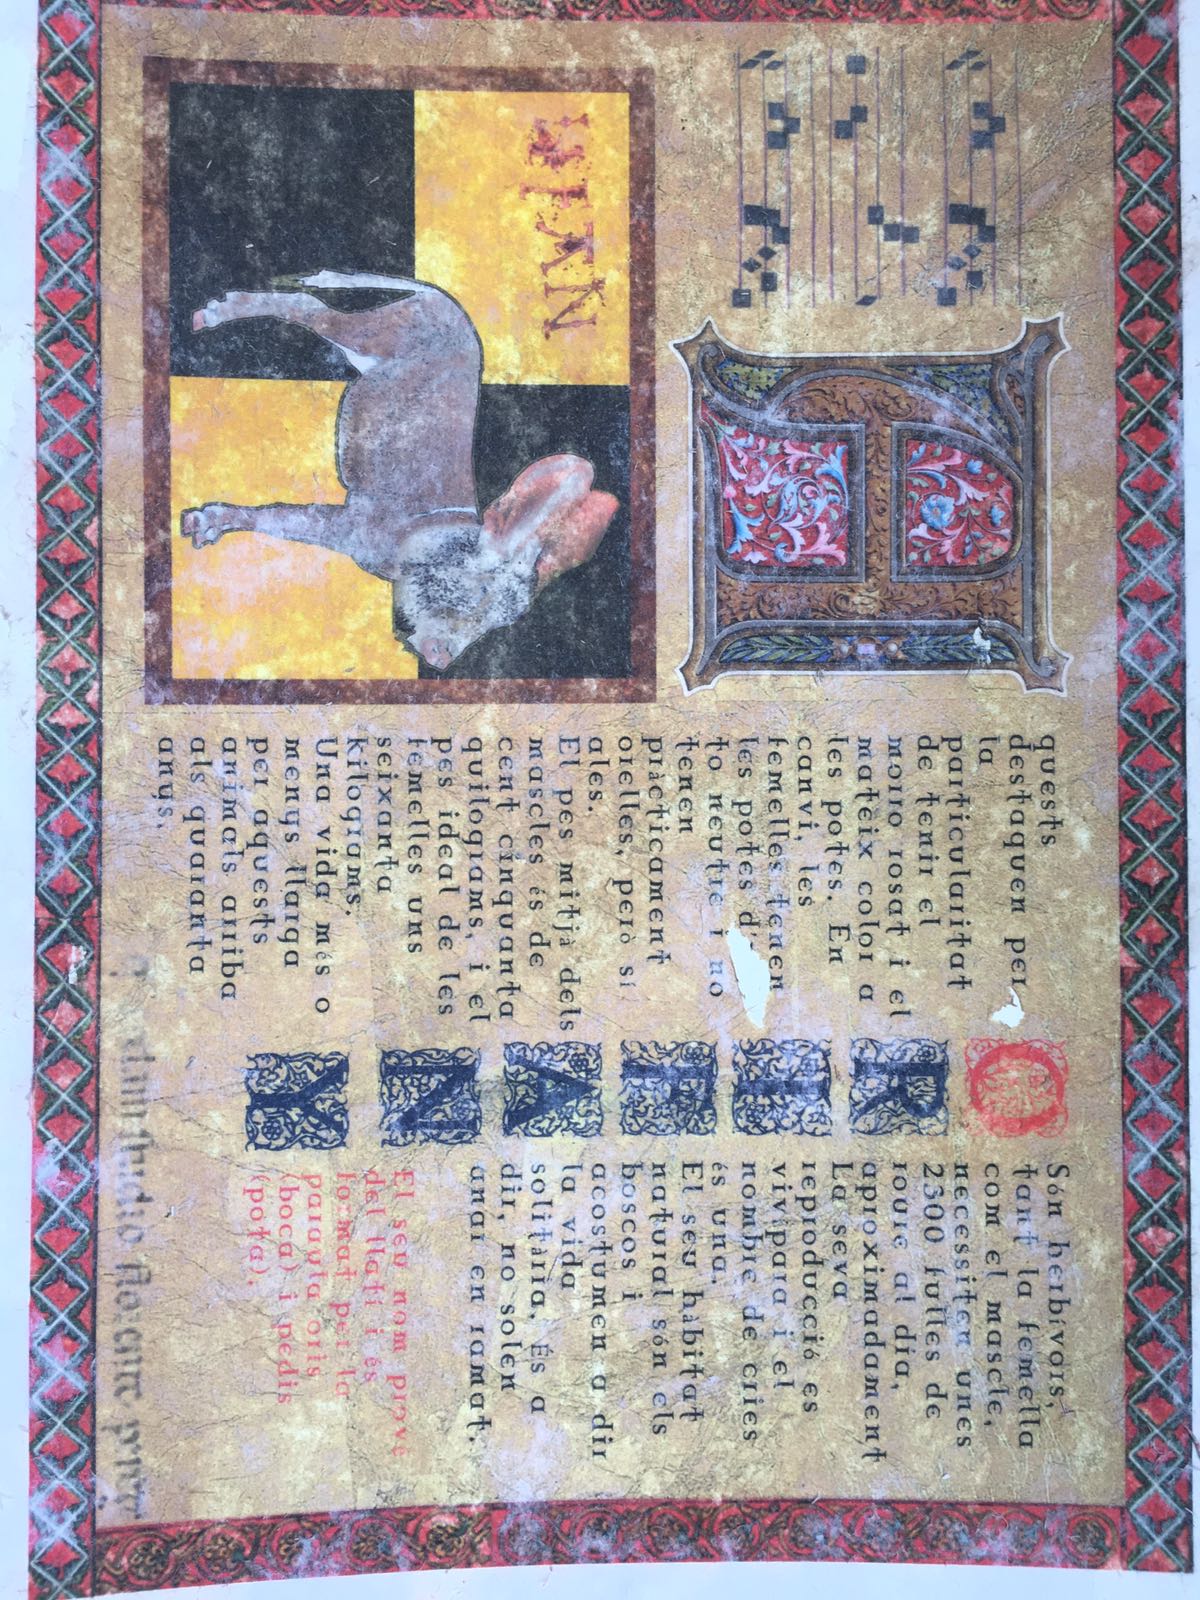 Aquests
destaquen per
la
particularitat
de tenir el
morro rosat i el
mateix color a
les potes. En
canvi, les
femelles tenen
les potes d'
to neutre i no
tenen
pràcticament
orelles, però sí
ales.
El pes mitjà dels
mascles és de
cent cinquanta
quilograms, i el
pes ideal de les
femelles uns
seixanta
kilograms.
Una vida més o
menys llarga
per aquests
animals arriba
als quaranta
anys.
Són herbívors,
tant la femella
com el mascle,
necessiten unes
2300 fulles de
roure al dia,
aproximadament
La seva
reproducció es
vivípara i el
nombre de cries
és una.
El seu hàbitat
natural són els
boscos i
acostumen a dir
la vida
solitària. És a
dir, no solen
anar en ramat.
El seu nom prové
del llatí i és
format per la
paraula oris
(boca) i pedis
(pota).